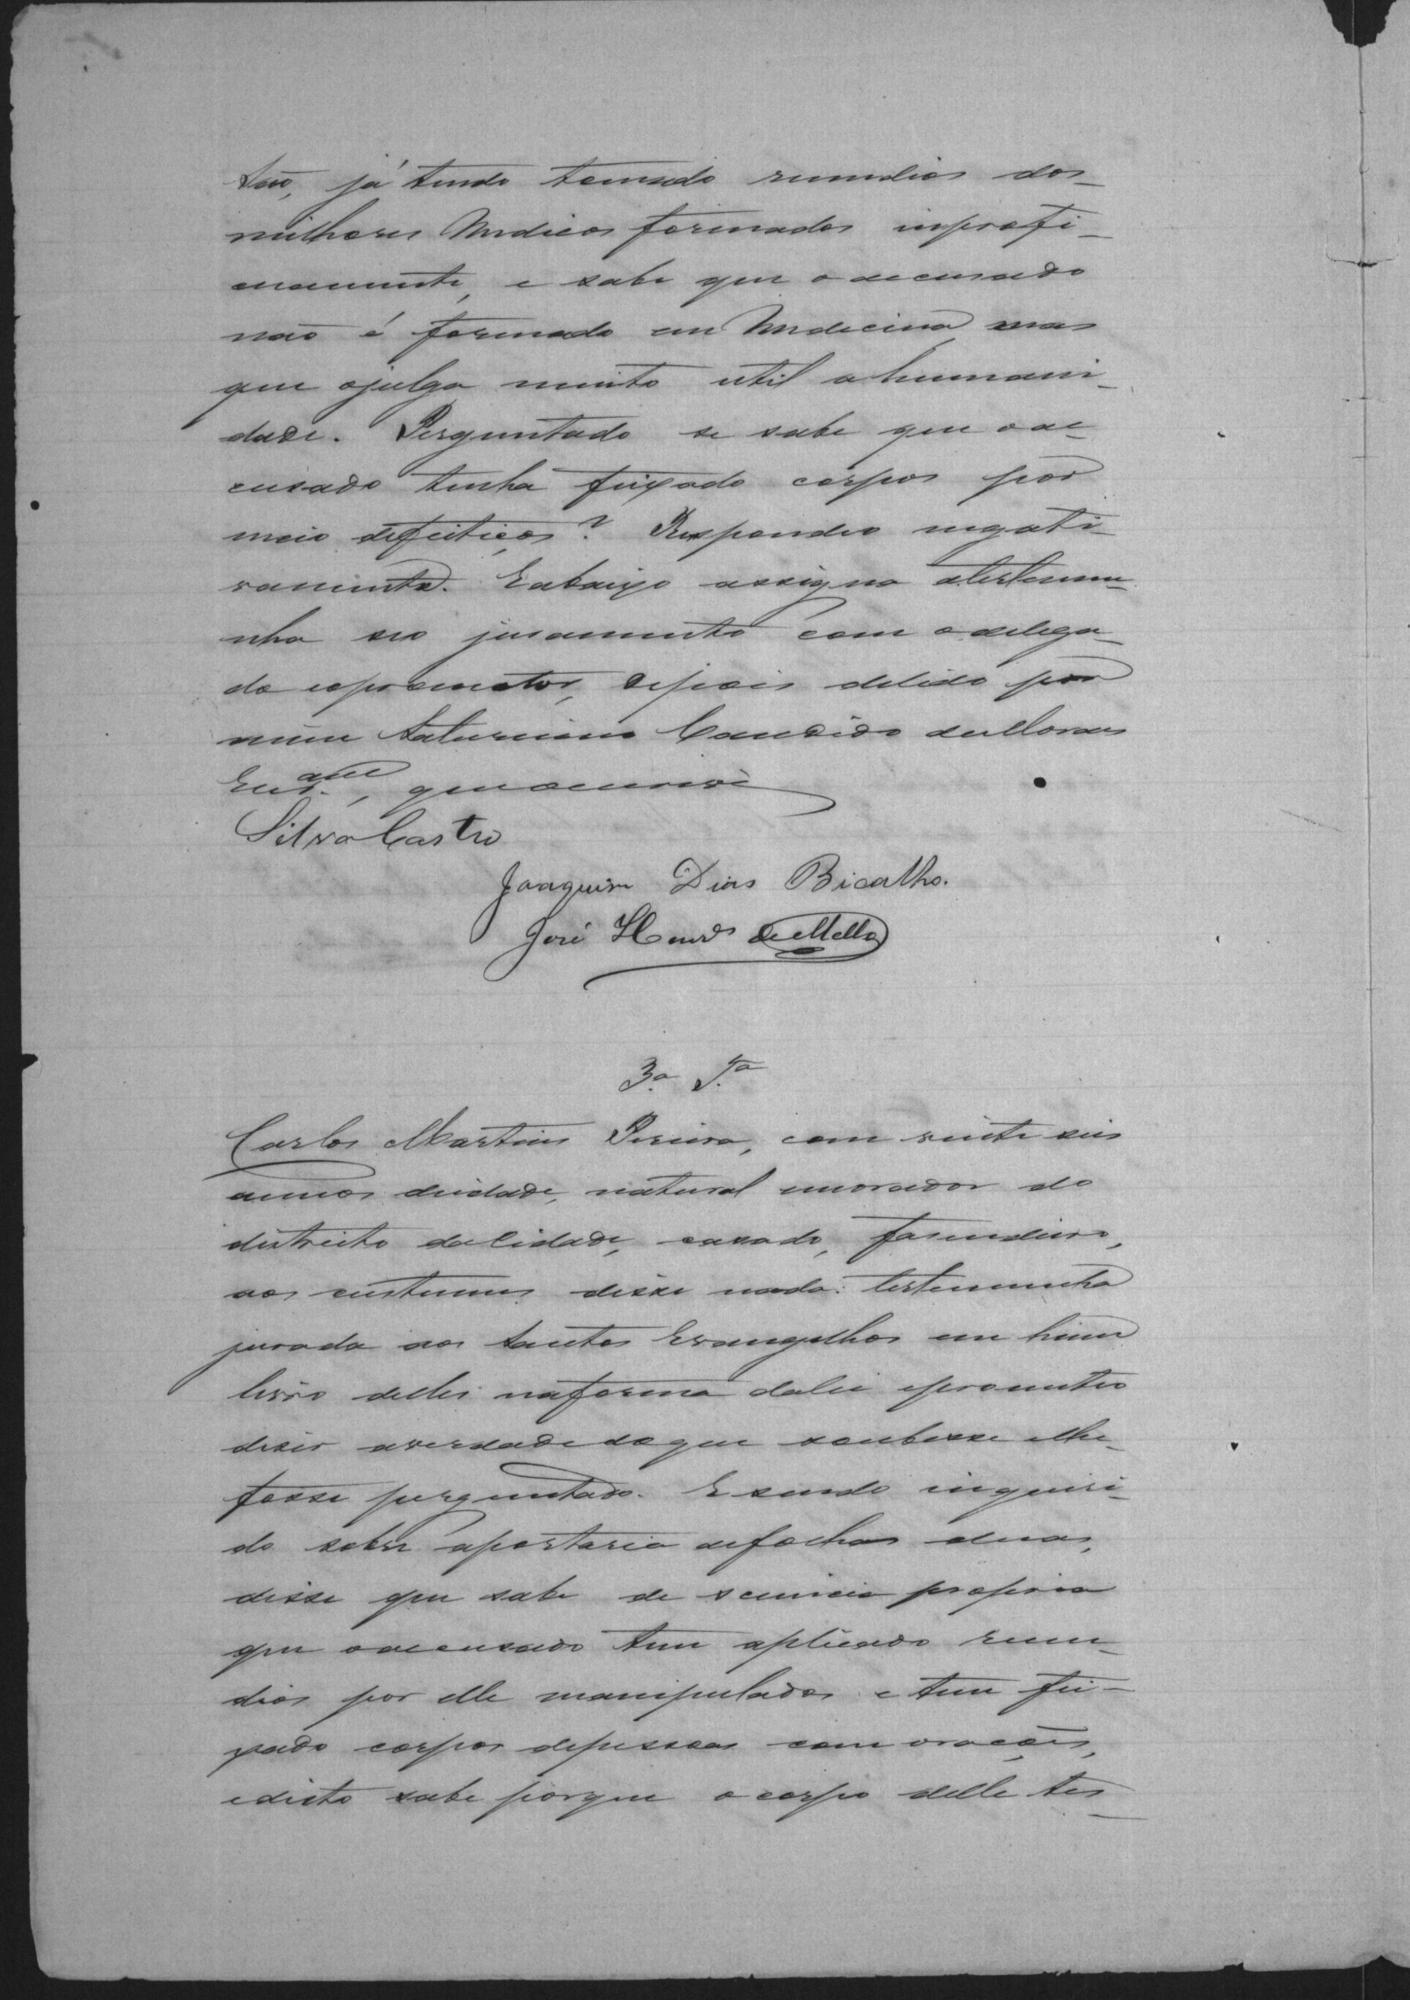 tão, já tendo tomado remedios dos
milhores Medicos formados inprofi-
cuamente, e sabe que o accusado
não é formado em Medicina mas
que o julga muito util a humani-
dade. Perguntado se sabe que o ac-
cusado tenha feixado corpos por
meio defeitiços? Respondeo negati-
vamente. E abaixo assigna a testemu-
nha seo juramento com o delega-
do e o promotor, depois delido por
mim Saturnino Candido de Moraes
que o escrevi
Silva Castro
Joaquim Dias Bicalho.
José Henrs de Mello
3ª Tª
Carlos Martins Pereira, com vinte seis
annos deidade, natural e morador do
districto da Cidade, casado, fasendeiro,
aos custumes disse nada: testemunha
jurada aos Santos Evangelhos em hum
livro delles na forma da lei e prometeo
diser a verdade do que soubesse e lhe
fosse perguntado. E sendo inquiri-
do sobre a portaria de folhas duas,
disse que sabe de sciencia propria
que o accusado tem aplicado reme-
dios por elle manipulados e tem fei-
xado corpos de pessoas com orações,
e disto sabe porque o corpo delle tes-